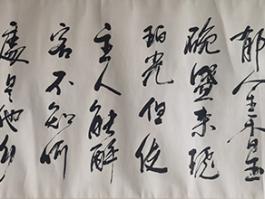 郁金香玉
碗盛来琥
珀光但使
主人能醉
客不知何
處是他鄉